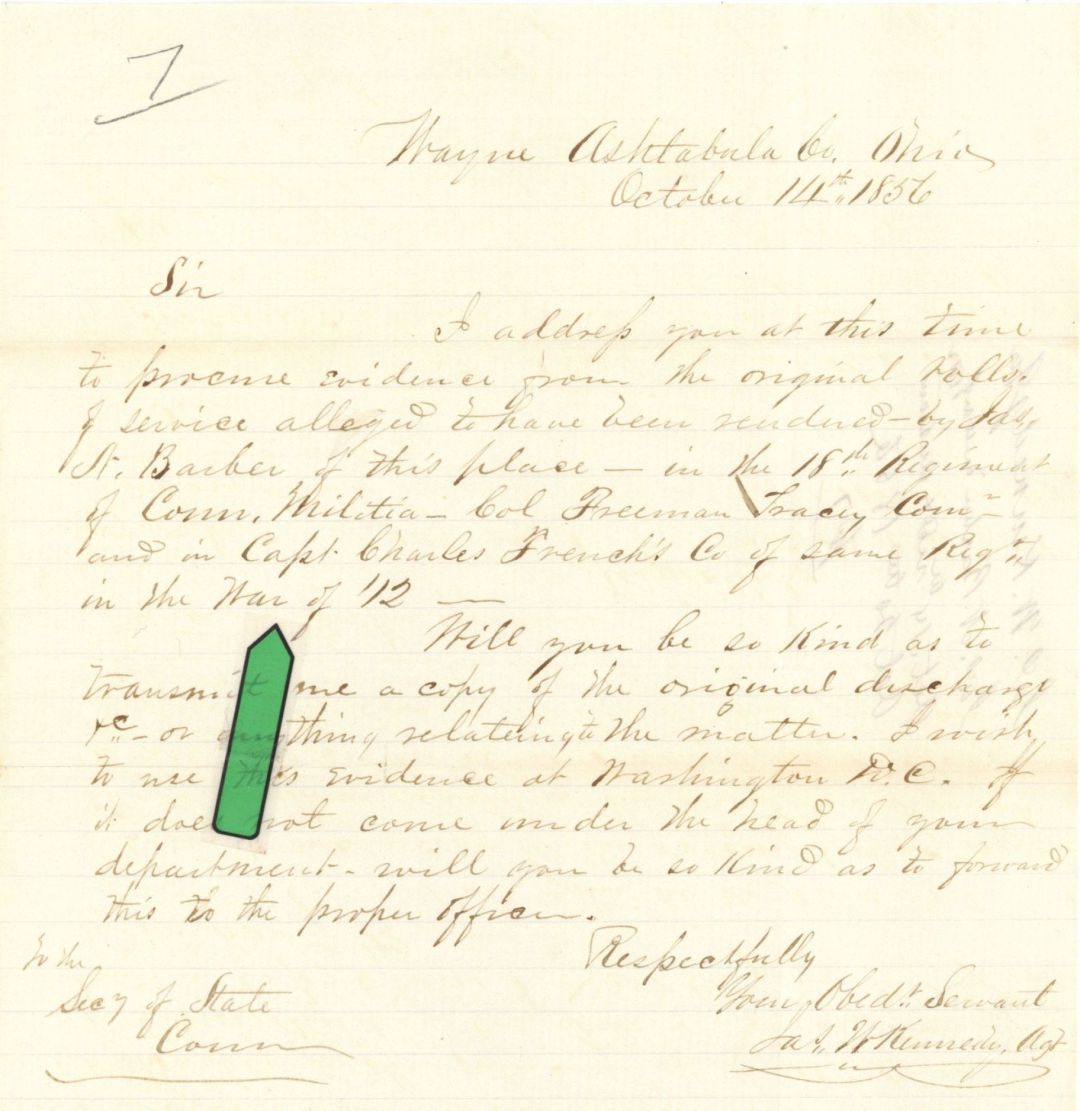 7
Wayne Ashtabula Co. Ohio
October 14th 1856
Sir
I address you at this time
to procure evidence from the original Rolls.
of service alleged to have been rendered - by Jas,
H. Barber of this place - in the 18th Regiment
of Conn. Militia - Col Freeman Tracey Com-
and in Capt. Charles French's Co of same Regt.
in the War of '12 —
Will you be so kind as to
transmit me a copy of the original discharge
&c - or anything relating to the matter. I wish
to use this evidence at Washington D.C. If
it does not come under the head of your
department - will you be so kind as to forward
this to the proper officer.
Respectfully
Your Obedt. Servant
Jas. W Kennedy, Agt
To the
Secy of State
Conn